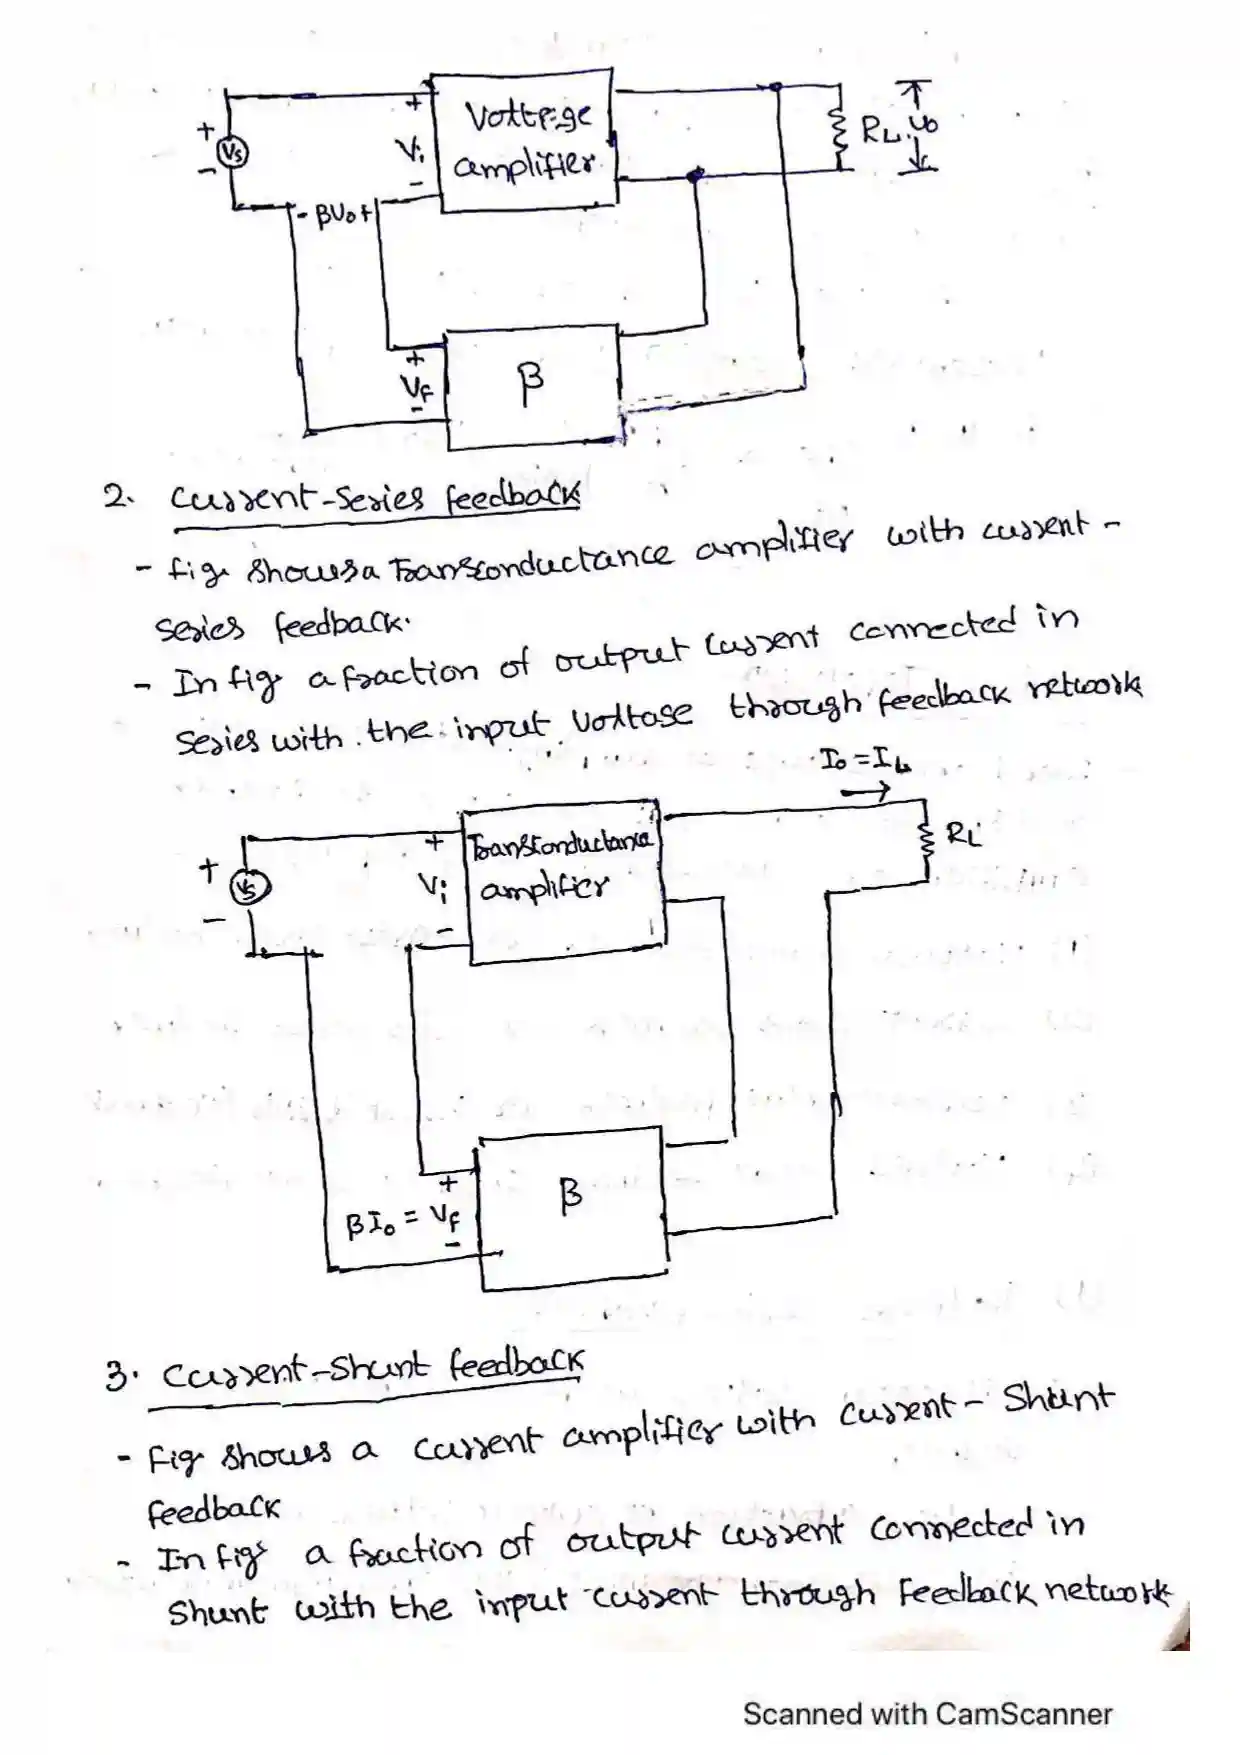 Voltage
amplifier
+
Vi
-
+
Vs
-
RL
Vo
- βVo +
+
Vf
-
β
2. Current-Series feedback
- fig. shows a Transconductance amplifier with current-
series feedback.
- In fig a fraction of output current connected in
series with the input voltage through feedback network
Io = IL
Transconductance
amplifier
+
Vi
-
+
Vs
-
RL
+
βIo = Vf
-
β
3. Current-Shunt feedback
- Fig shows a current amplifier with current-Shunt
feedback
- In fig a fraction of output current connected in
Shunt with the input current through Feedback network
Scanned with CamScanner